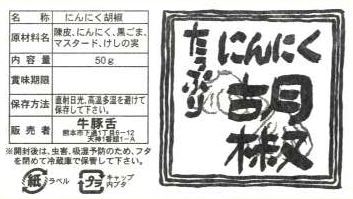 名称 にんにく胡椒
原材料名 陳皮、にんにく、黒ごま、
マスタード、けしの実
内容量 50g
賞味期限
保存方法 直射日光、高温多湿を避けて
保存して下さい。
販売者 牛豚舌
熊本市下通1丁目6-12
天神1番館1-A
※開封後は、虫害、吸湿予防のため、フタ
を閉めて冷蔵庫で保管して下さい。
紙 ラベル
プラ キャップ
内ブタ
たっぷり
にんにく
胡椒